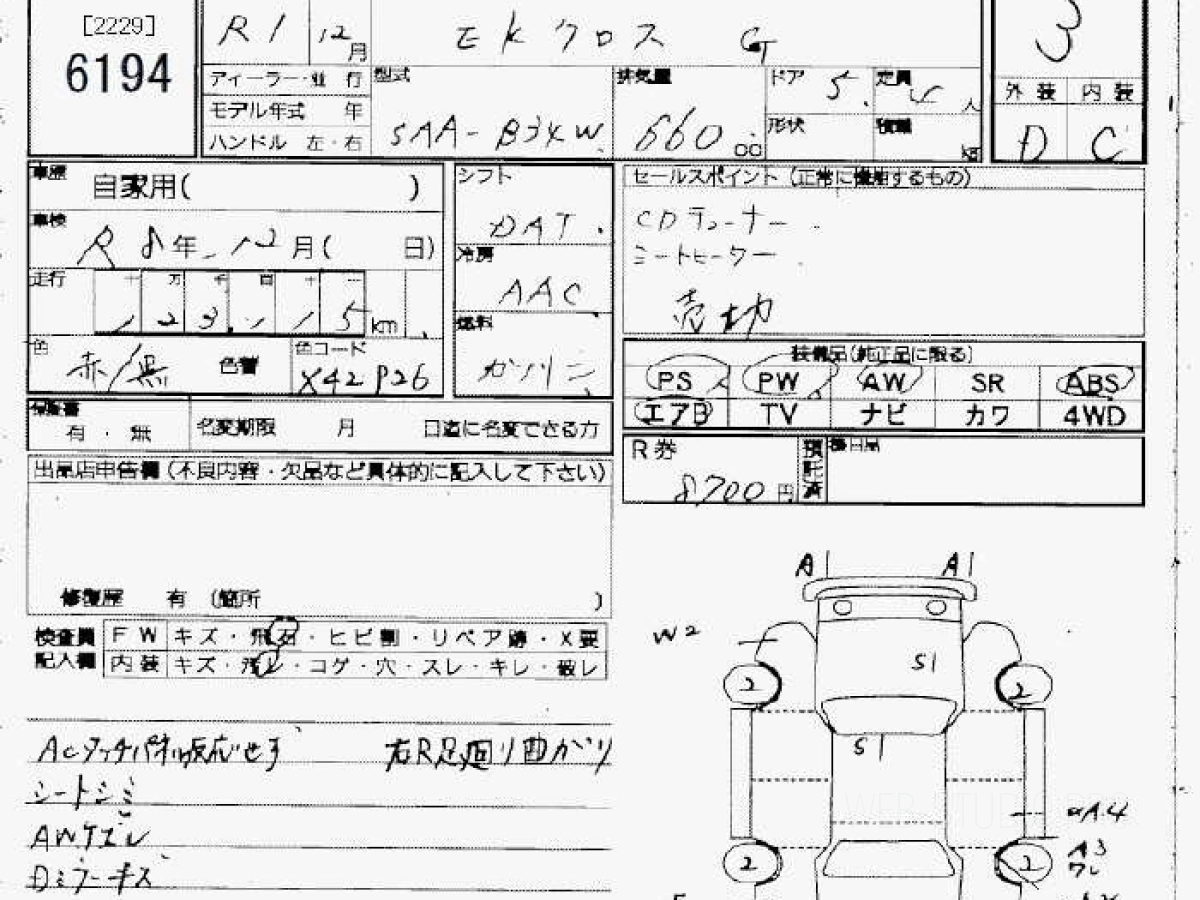 [2229]
6194
R1 12月
EKクロス G
3
ディーラー・並行
モデル年式 年
ハンドル 左・右
型式
5AA-B34W
排気量
660 cc
ドア 5
定員 4 人
形状
積載 kg
外装 内装
D C
車歴
自家用( )
車検
R8年 12月( 日)
走行
十 万 千 百 十 一
1 2 3 1 1 5 km
色
赤/黒
色替
色コード
X42P26
シフト
DAT
冷房
AAC
燃料
ガソリン
セールスポイント(正常に機能するもの)
CDチューナー
シートヒーター
売切
装備品(純正品に限る)
PS PW AW SR ABS
エアB TV ナビ カワ 4WD
保証書
有・無
名変期限 月 日迄に名変できる方
R券
8700円
預託済
出品店申告欄(不良内容・欠品など具体的に記入して下さい)
修復歴 有 (箇所 )
検査員記入欄
FW キズ・飛石・ヒビ割・リペア跡・X要
内装 キズ・汚レ・コゲ・穴・スレ・キレ・破レ
ACタッチパネル反応せず 右R足廻り曲がり
シートシミ
AWケズレ
Dミラーキズ
A1 A1
W2
S1
2 2
S1
A4
A3
ワレ
2 2